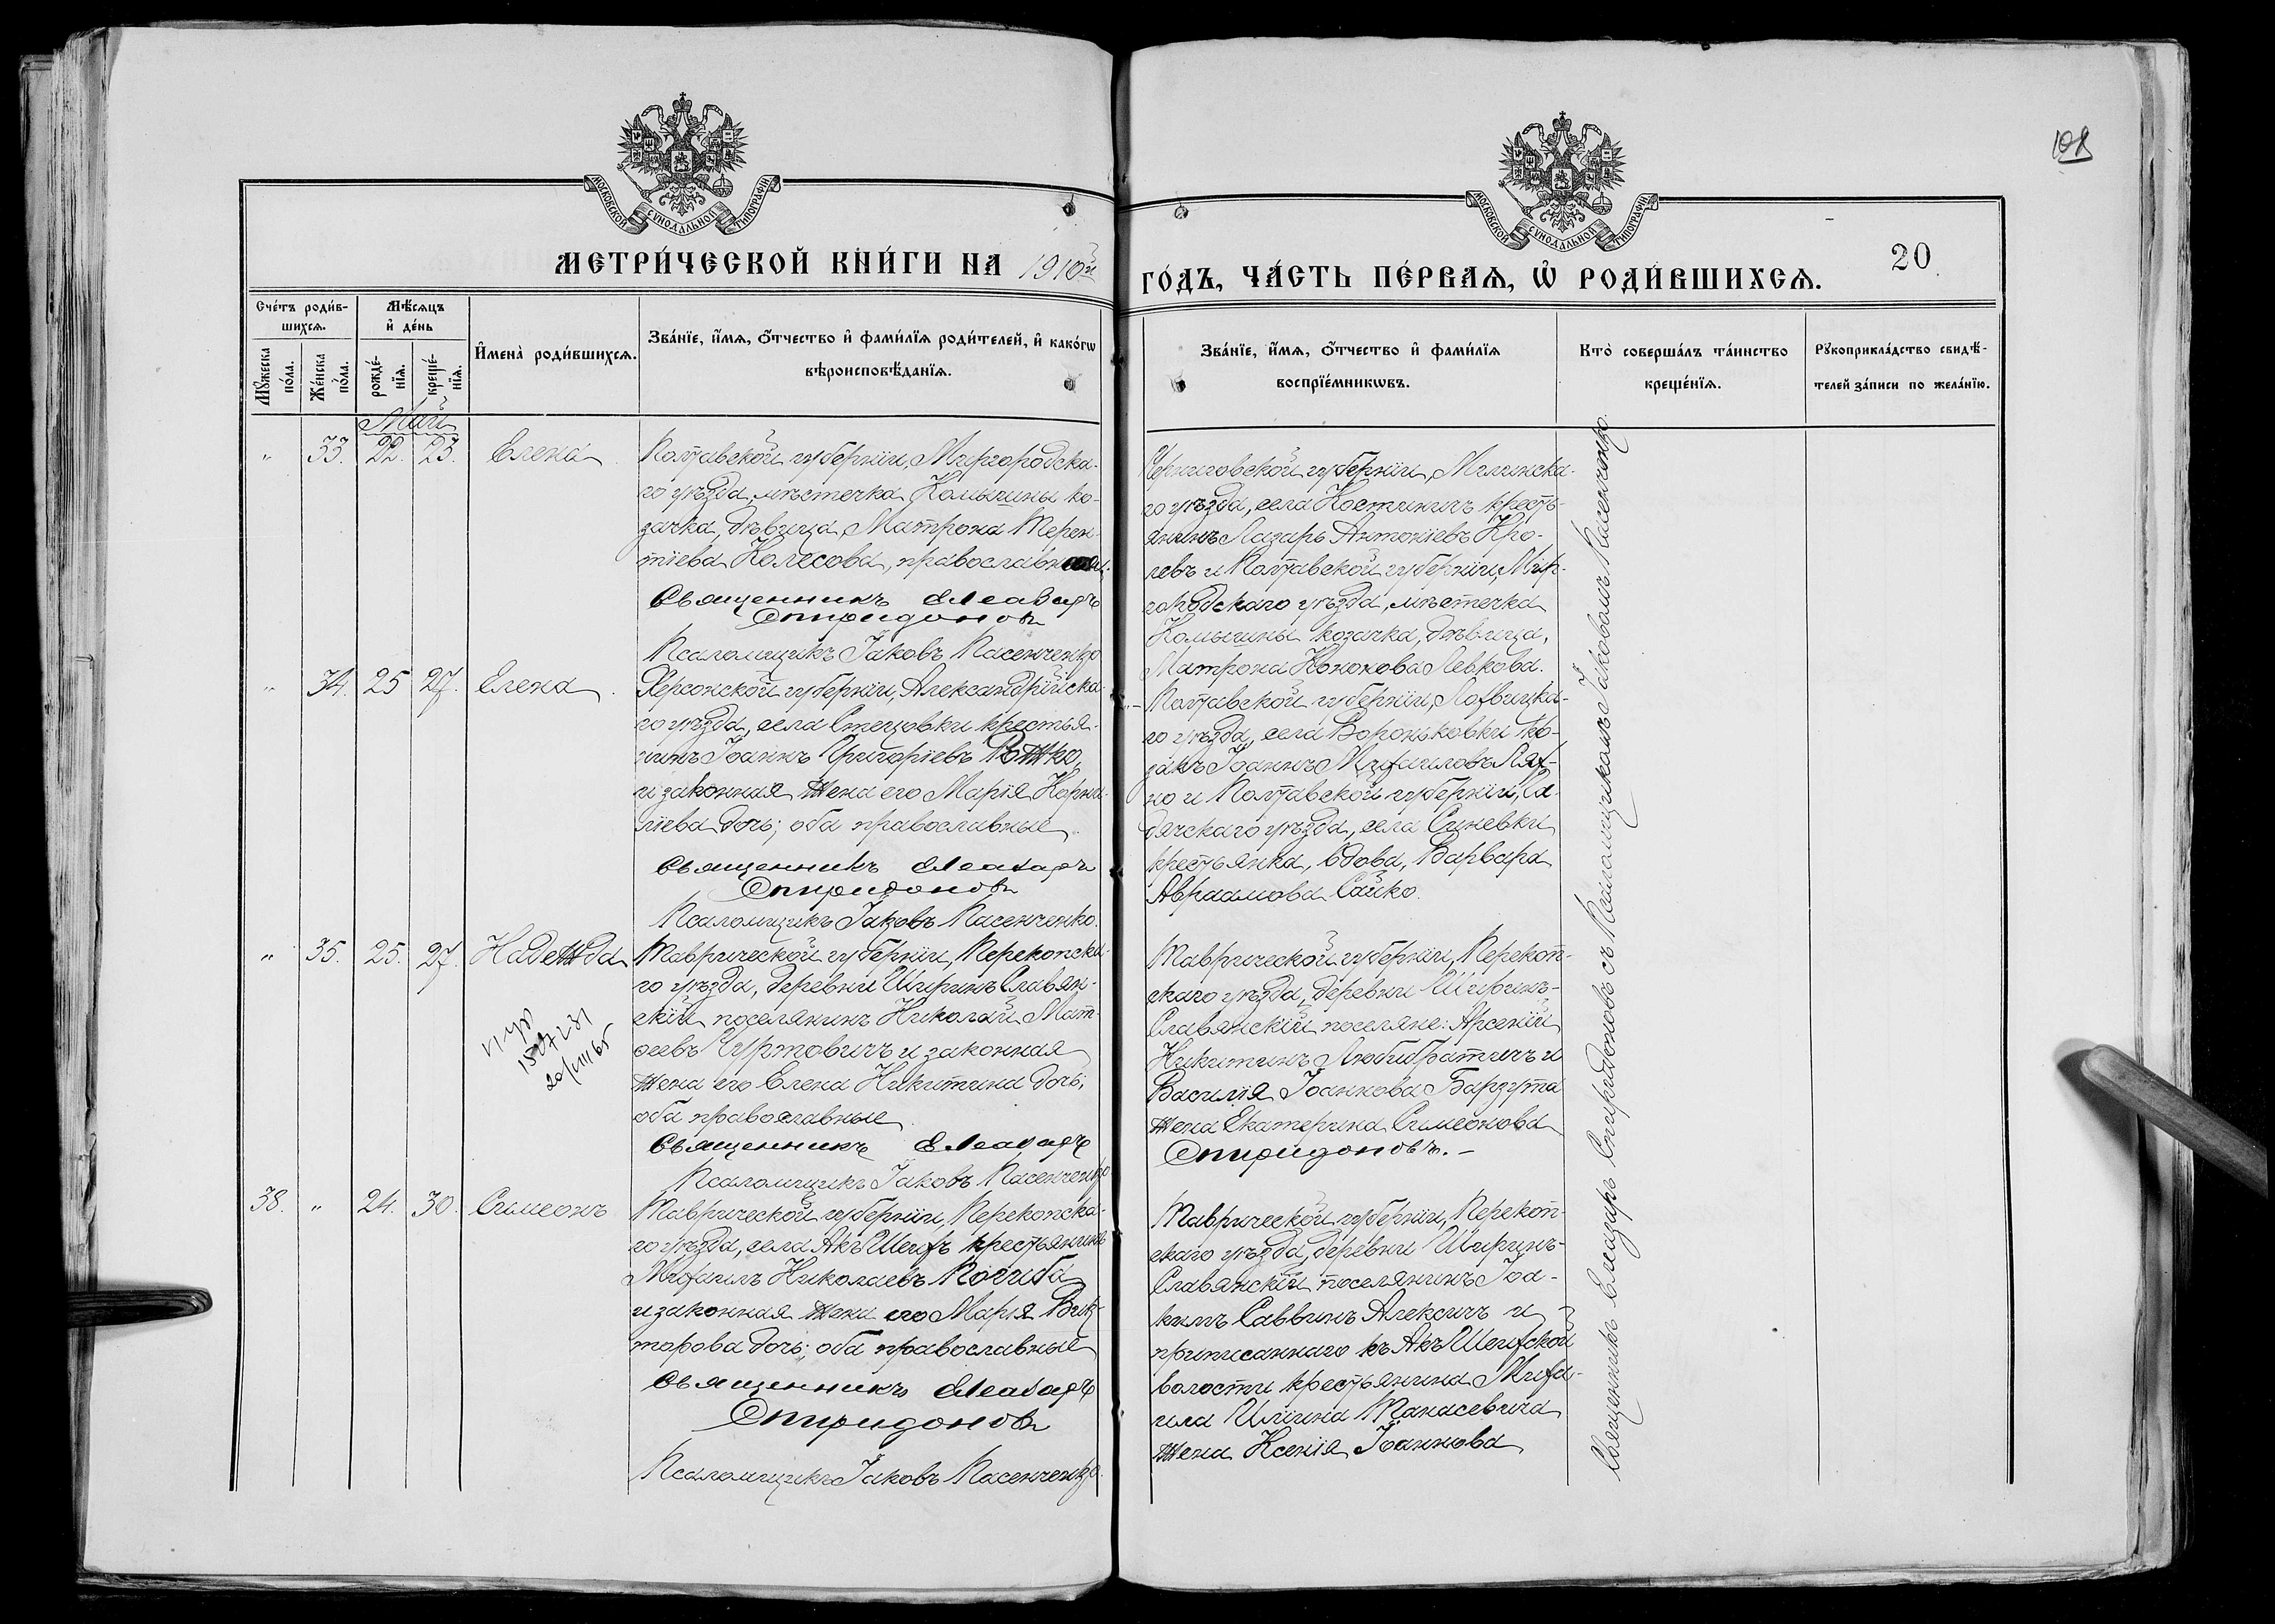 108
МОСКОВСКОЙ СѴНОДАЛЬНОЙ ТИПОГРАФІИ
МОСКОВСКОЙ СѴНОДАЛЬНОЙ ТИПОГРАФІИ
МЕТРИ́ЧЕСКОЙ КНИ́ГИ НА 1910й
ГО́ДЪ, ЧА́СТЬ ПЕ́РВАѦ, Ѡ РОДИ́ВШИХСѦ.
20
Сче́тъ роди́в-
шихсѧ.
Мꙋ́жеска
по́ла.
Же́нска
по́ла.
Мѣ́сѧцъ
и҆ де́нь
рожде́-
нїѧ.
креще́-
нїѧ.
И҆мена̀ роди́вшихсѧ.
Зва́нїе, и҆́мѧ, ѻ҆́тчество и҆ фами́лїѧ роди́телей, и҆ како́гѡ
вѣроисповѣ́данїѧ.
Зва́нїе, и҆́мѧ, ѻ҆́тчество и҆ фами́лїѧ
воспрїе́мникѡвъ.
Кто̀ соверша́лъ та́инство
креще́нїѧ.
Рꙋкоприкла́дство свидѣ́-
телей за́писи по жела́нїю.
Май
" 33. 22. 23. Елена
Полтавской губерніи, Миргородска-
го уѣзда, мѣстечка Комышны ко-
зачка, дѣвица, Матрона Терен-
тіева Колесова, православн
Священникъ Елеазаръ
Спиридоновъ
Псаломщикъ Іаковъ Пасенченко
Черниговской губерніи, Мглинска-
го уѣзда, села Костиничъ кресть-
янинъ Лазарь Антоніевъ Кро-
левъ и Полтавской губерніи, Мир-
городскаго уѣзда, мѣстечка
Комышны козачка, дѣвица,
Матрона Кононова Левкова.
" 34. 25 27. Елена
Херсонской губерніи, Александрійска-
го уѣзда, села Стецовки крестья-
нинъ Іоаннъ Григоріевъ Рожко,
и законная жена его Марія Корни-
ліева дочь; оба православные
Священникъ Елеазаръ
Спиридоновъ
Псаломщикъ Іаковъ Пасенченко.
Полтавской губерніи, Лохвицка-
го уѣзда, села Вороньковки ко-
закъ Іоаннъ Михаиловъ Лях-
но и Полтавской губерніи, Га-
дячскаго уѣзда, села Синевки
крестьянка, вдова, Варвара
Авраамова Сайко.
" 35. 25. 27. Надежда
Таврической губерніи, Перекопска-
го уѣзда, деревни Ширинъ Славян-
скій поселянинъ Николай Мат-
ѳеевъ Чуртовичъ и законная
жена его Елена Никитина дочь;
оба православные
Священникъ Елеазаръ
Псаломщикъ Іаковъ Пасенченко
Таврической губерніи, Перекоп-
скаго уѣзда, деревни Ширинъ-
Славянскій поселяне: Арсеній
Никитинъ Любибратичъ и
Василія Іоаннова Барзута
жена Екатерина Симеонова
Спиридоновъ. –
20/VIII 65
38. " 24. 30. Симеонъ
Таврической губерніи, Перекопска-
го уѣзда, села Акъ Шеихъ крестьянинъ
Михаилъ Николаевъ Погиба
и законная жена его Марія Вик-
торова дочь; оба православные
Священникъ Елеазаръ
Спиридоновъ
Псаломщикъ Іаковъ Пасенченко.
Таврической губерніи, Перекоп-
скаго уѣзда, деревни Ширинъ-
Славянскій поселянинъ Іоа-
кимъ Саввинъ Алексичъ и
приписаннаго къ Акъ Шеихской
волости крестьянина Миха-
ила Ильина Танасевича
жена Ксенія Іоаннова
Священникъ Елеазаръ Спиридоновъ съ Псаломщикомъ Іаковомъ Пасенченко.